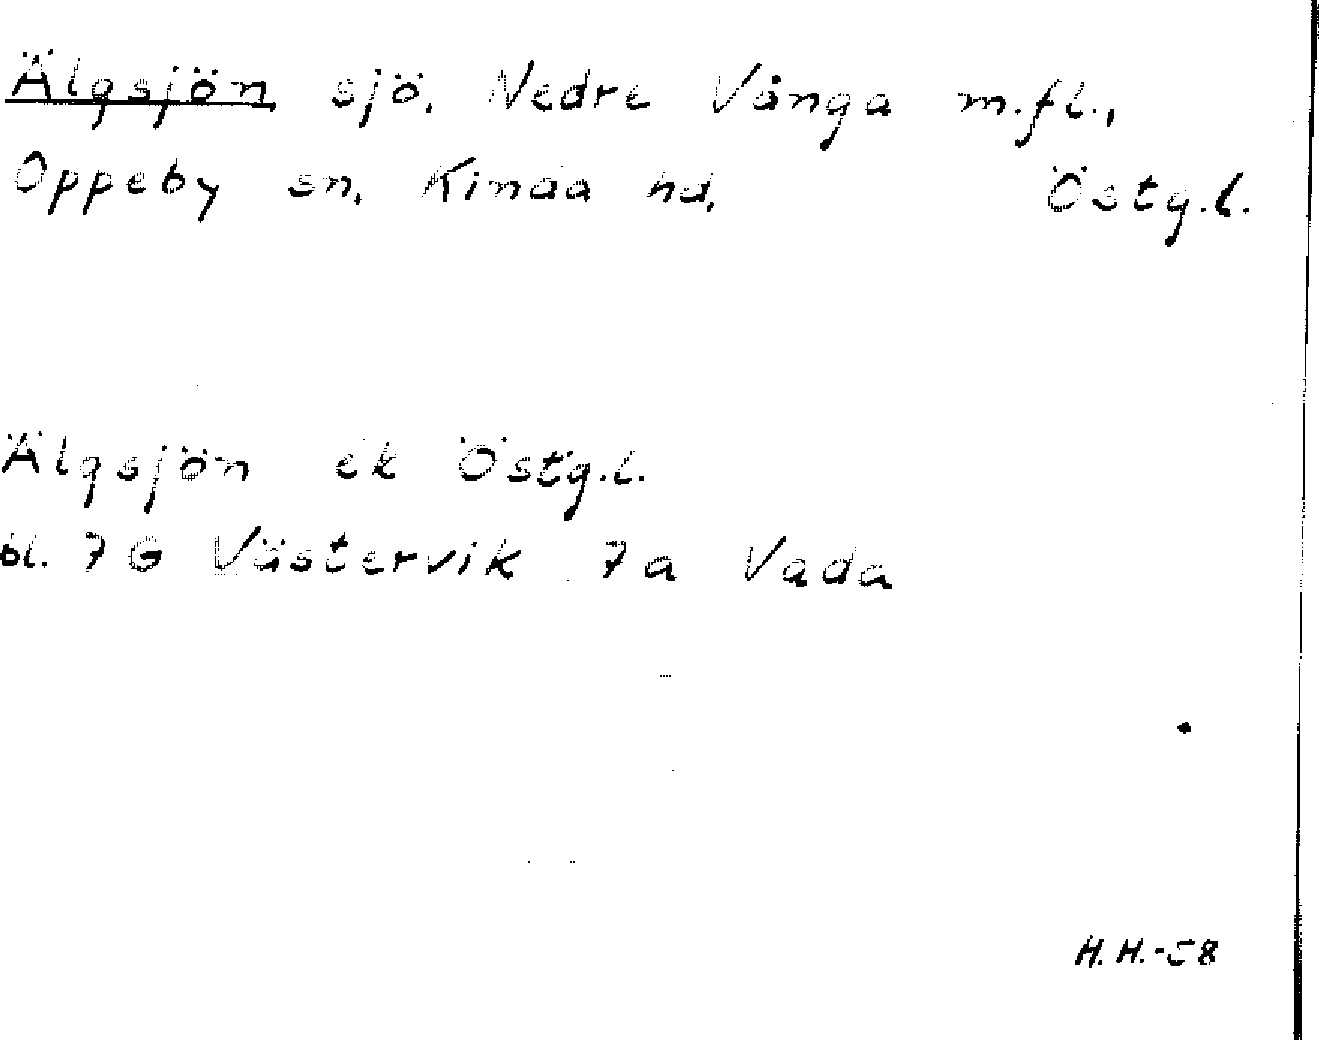 Älgsjön sjö, Nedre Vånga m.fl.,
Oppeby sn, Kinda hd, Östg.l.
Älgsjön ek Östg.l.
bl. 7G Västervik 7a Vada
H.H.-58